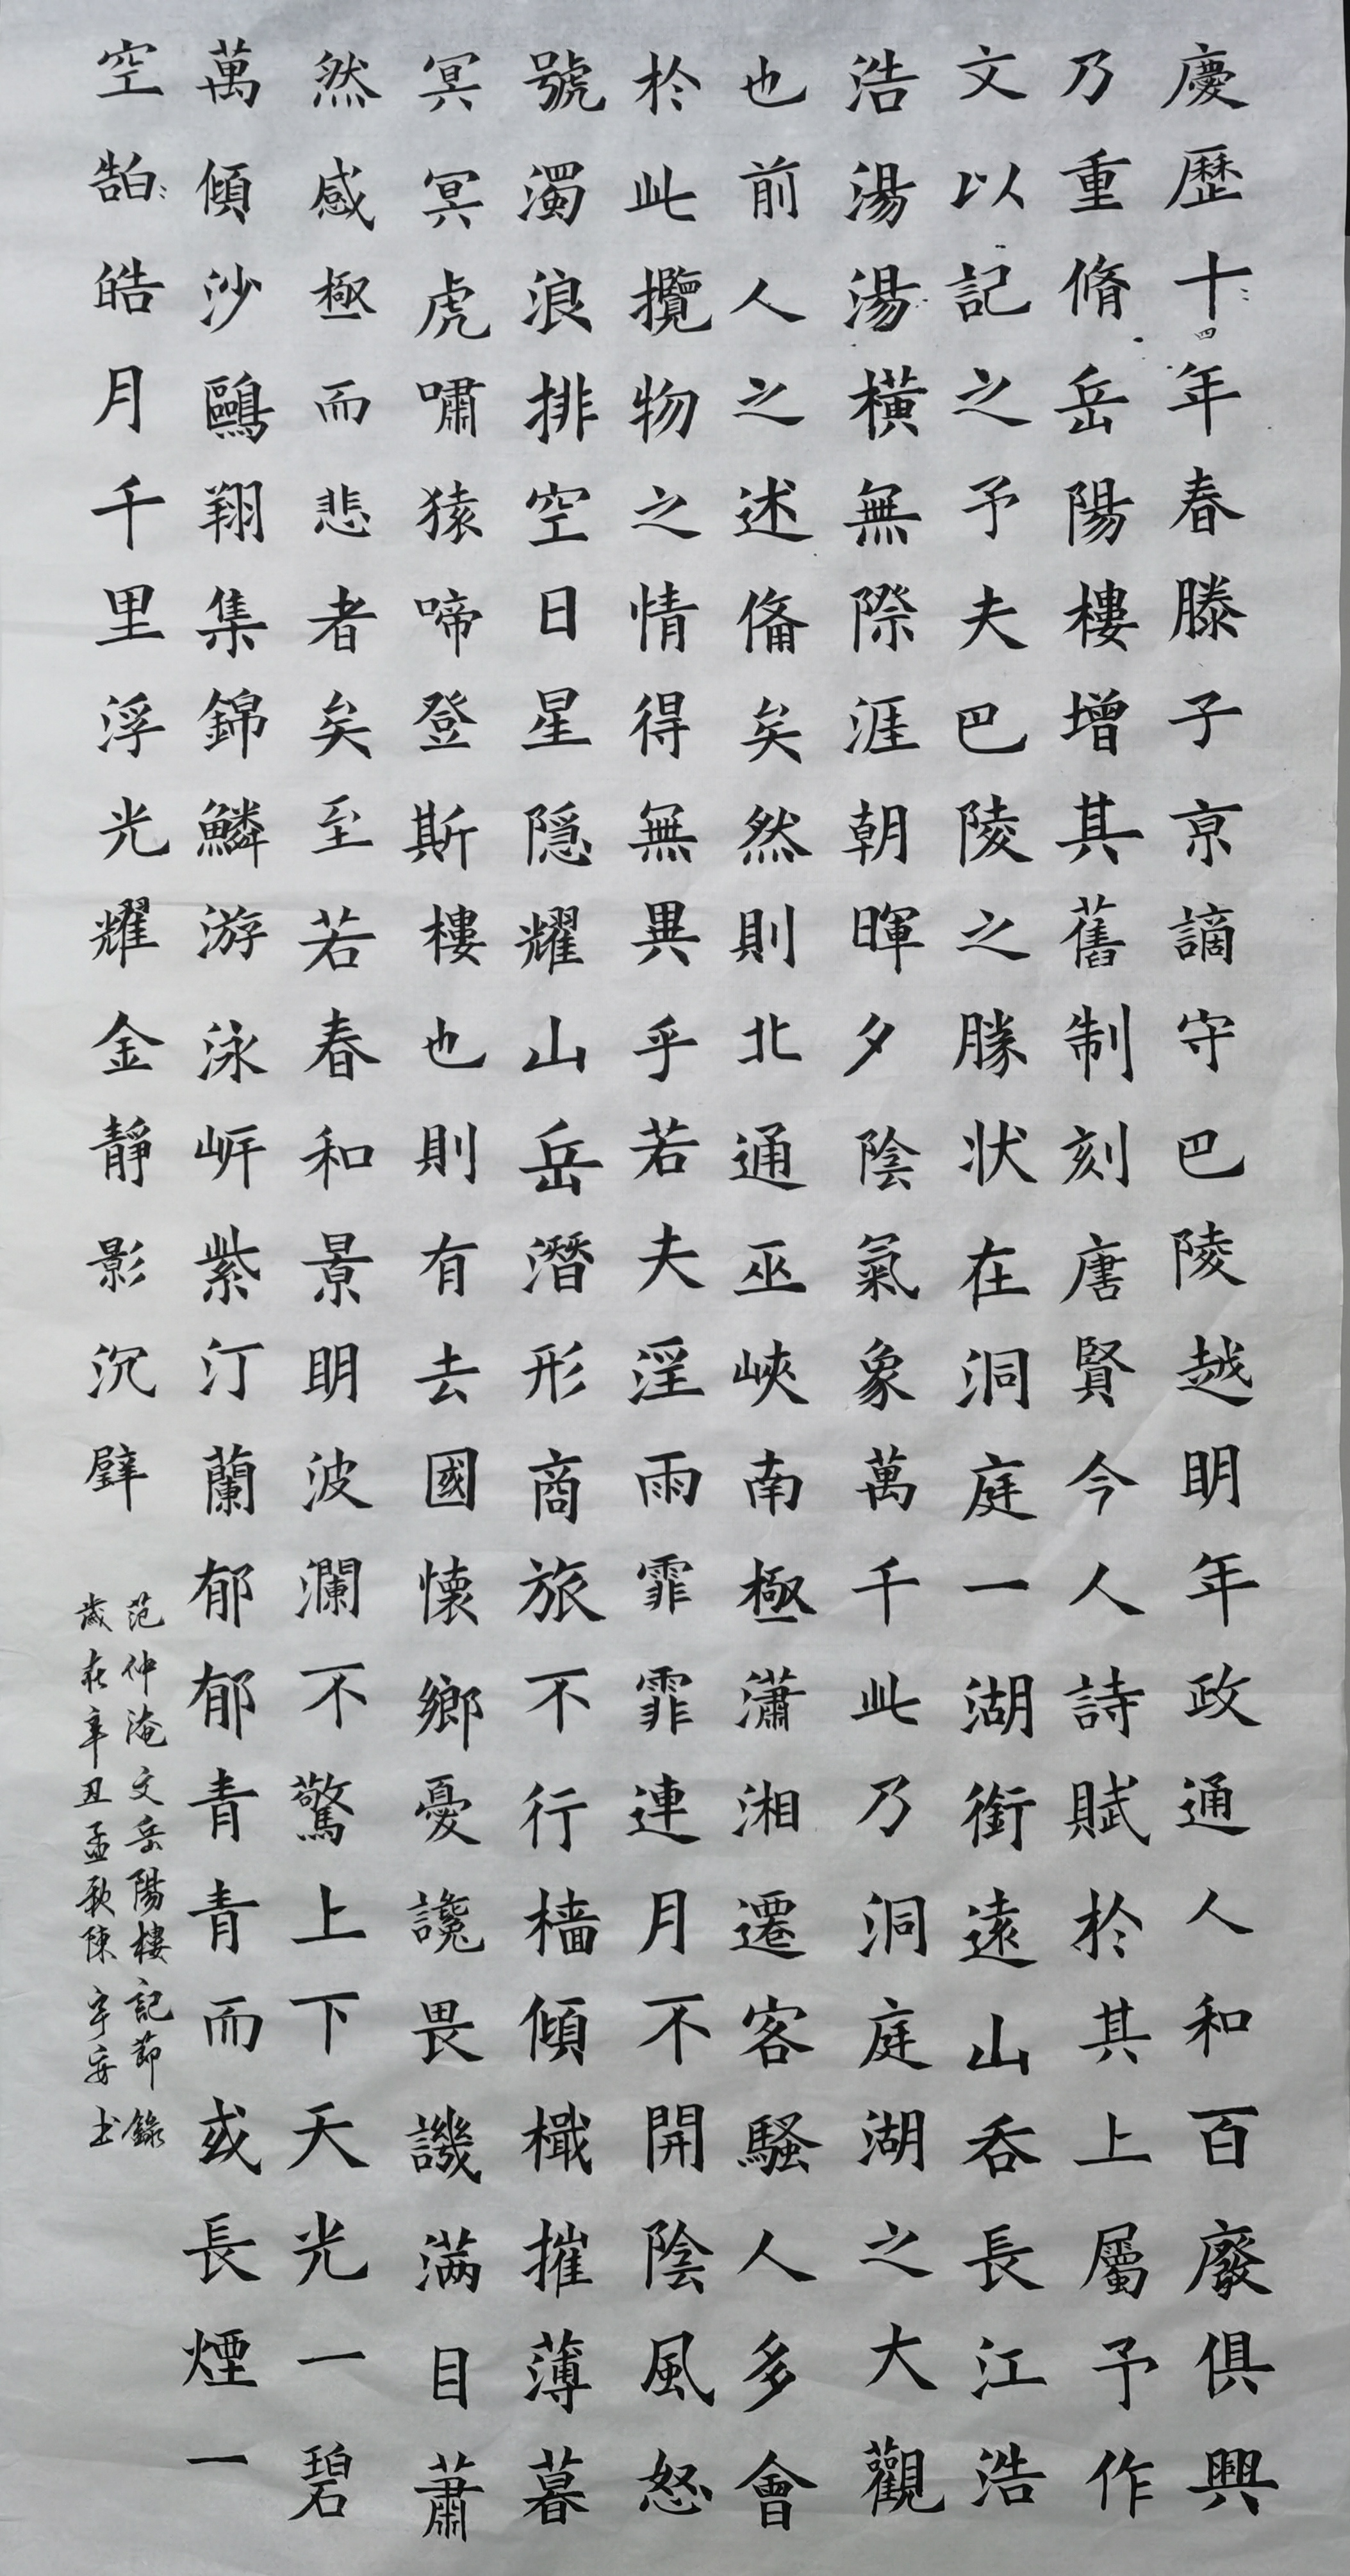 慶歷十四年春滕子京謫守巴陵越明年政通人和百廢俱興
乃重脩岳陽樓增其舊制刻唐賢今人詩賦於其上屬予作
文以記之予夫巴陵之勝狀在洞庭一湖銜遠山吞長江浩
浩湯湯橫無際涯朝暉夕陰氣象萬千此乃洞庭湖之大觀
也前人之述俻矣然則北通巫峽南極瀟湘遷客騷人多會
於此攬物之情得無異乎若夫淫雨霏霏連月不開陰風怒
號濁浪排空日星隱耀山岳潛形商旅不行檣傾檝摧薄暮
冥冥虎嘯猿啼登斯樓也則有去國懷鄉憂讒畏譏滿目蕭
然感極而悲者矣至若春和景明波瀾不驚上下天光一碧
萬傾沙鷗翔集錦鱗游泳岸紫汀蘭郁郁青青而或長煙一
空皓月千里浮光耀金靜影沉璧
范仲淹文岳陽樓記節錄
歲在辛丑孟秋陳宇安书